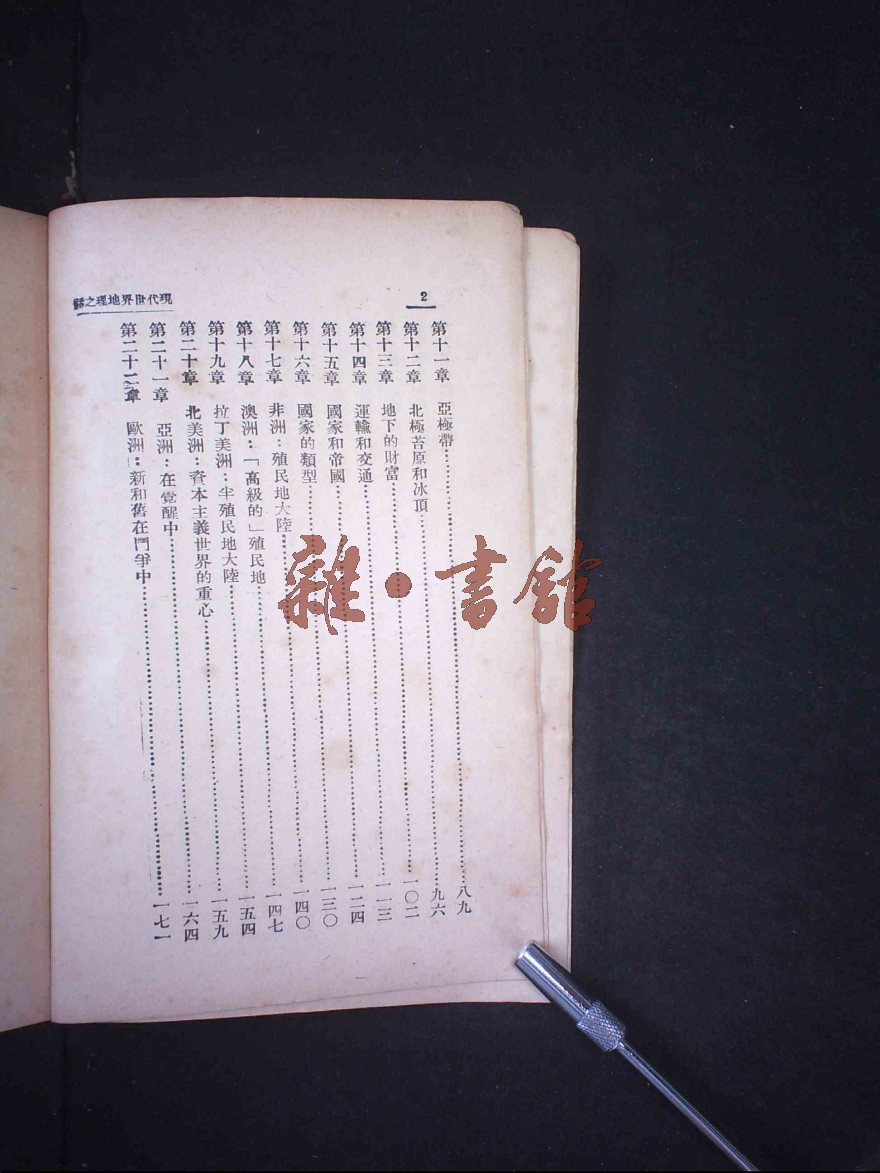 2
現代世界地理之話
第十一章　亞極帶……八九
第十二章　北極苔原和冰頂……九六
第十三章　地下的財富……一〇二
第十四章　運輸和交通……一一三
第十五章　國家和帝國……一二四
第十六章　國家的類型……一三〇
第十七章　非洲：殖民地大陸……一四〇
第十八章　澳洲：「高級的」殖民地……一四七
第十九章　拉丁美洲：半殖民地大陸……一五四
第二十章　北美洲：資本主義世界的重心……一五九
第二十一章　亞洲：在覺醒中……一六四
第二十二章　歐洲：新和舊在鬥爭中……一七一
雜·書館